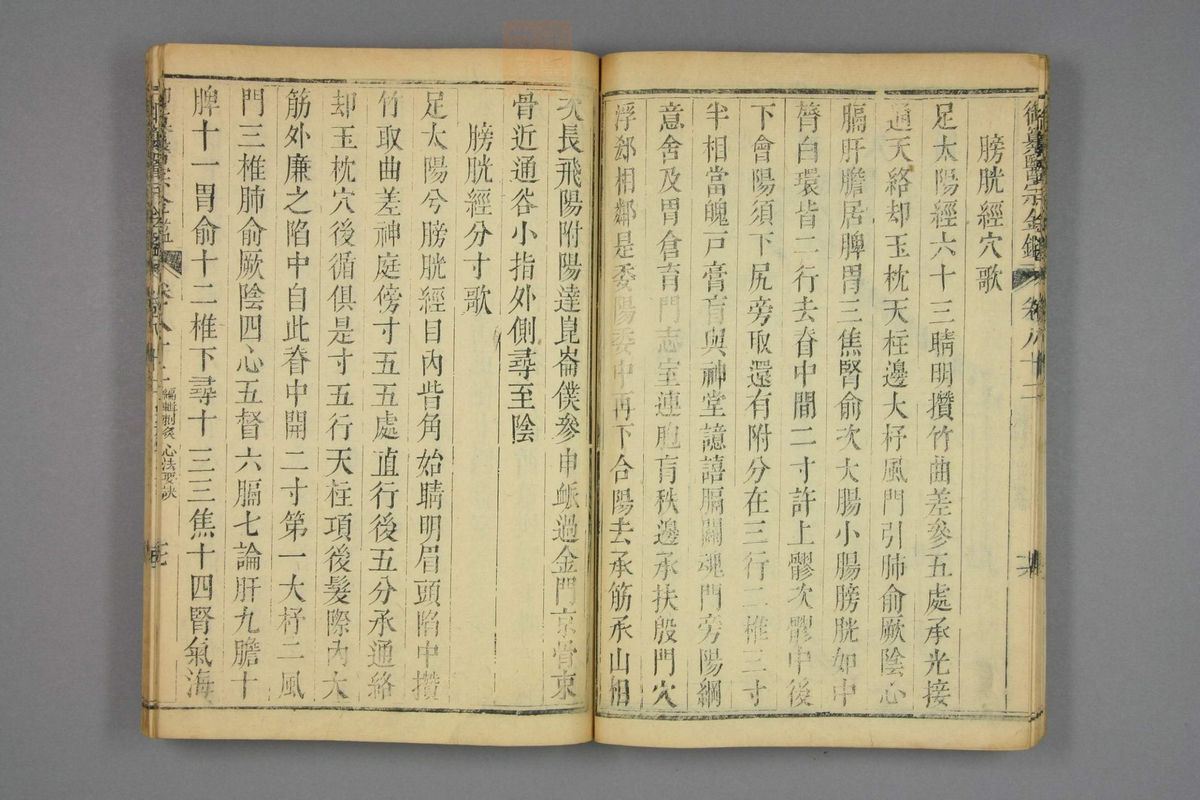 御纂醫宗金鑑 卷八十二
膀胱經穴歌
足太陽經六十三睛明攢竹曲差參五處承光接
通天絡却玉枕天柱邊大杼風門引肺俞厥陰心
膈肝膽居脾胃三焦腎俞次大腸小腸膀胱如中
膂白環皆二行去脊中間二寸許上髎次髎中後
下會陽須下尻旁取還有附分在三行二椎三寸
半相當魄戶膏肓與神堂譩譆膈關魂門旁陽綱
意舍及胃倉肓門志室連胞肓秩邊承扶殷門穴
浮郄相鄰是委陽委中再下合陽去承筋承山相
次長飛陽附陽達崑崙僕參申䘑過金門京骨東
骨近通谷小指外側尋至陰
膀胱經分寸歌
足太陽兮膀胱經目內眥角始睛明眉頭陷中攢
竹取曲差神庭傍寸五五處直行後五分承通絡
却玉枕穴後循俱是寸五行天柱項後髮際內大
筋外廉之陷中自此脊中開二寸第一大杼二風
門三椎肺俞厥陰四心五督六膈七論肝九膽十
脾十一胃俞十二椎下尋十三三焦十四腎氣海
編輯刺灸心法要訣